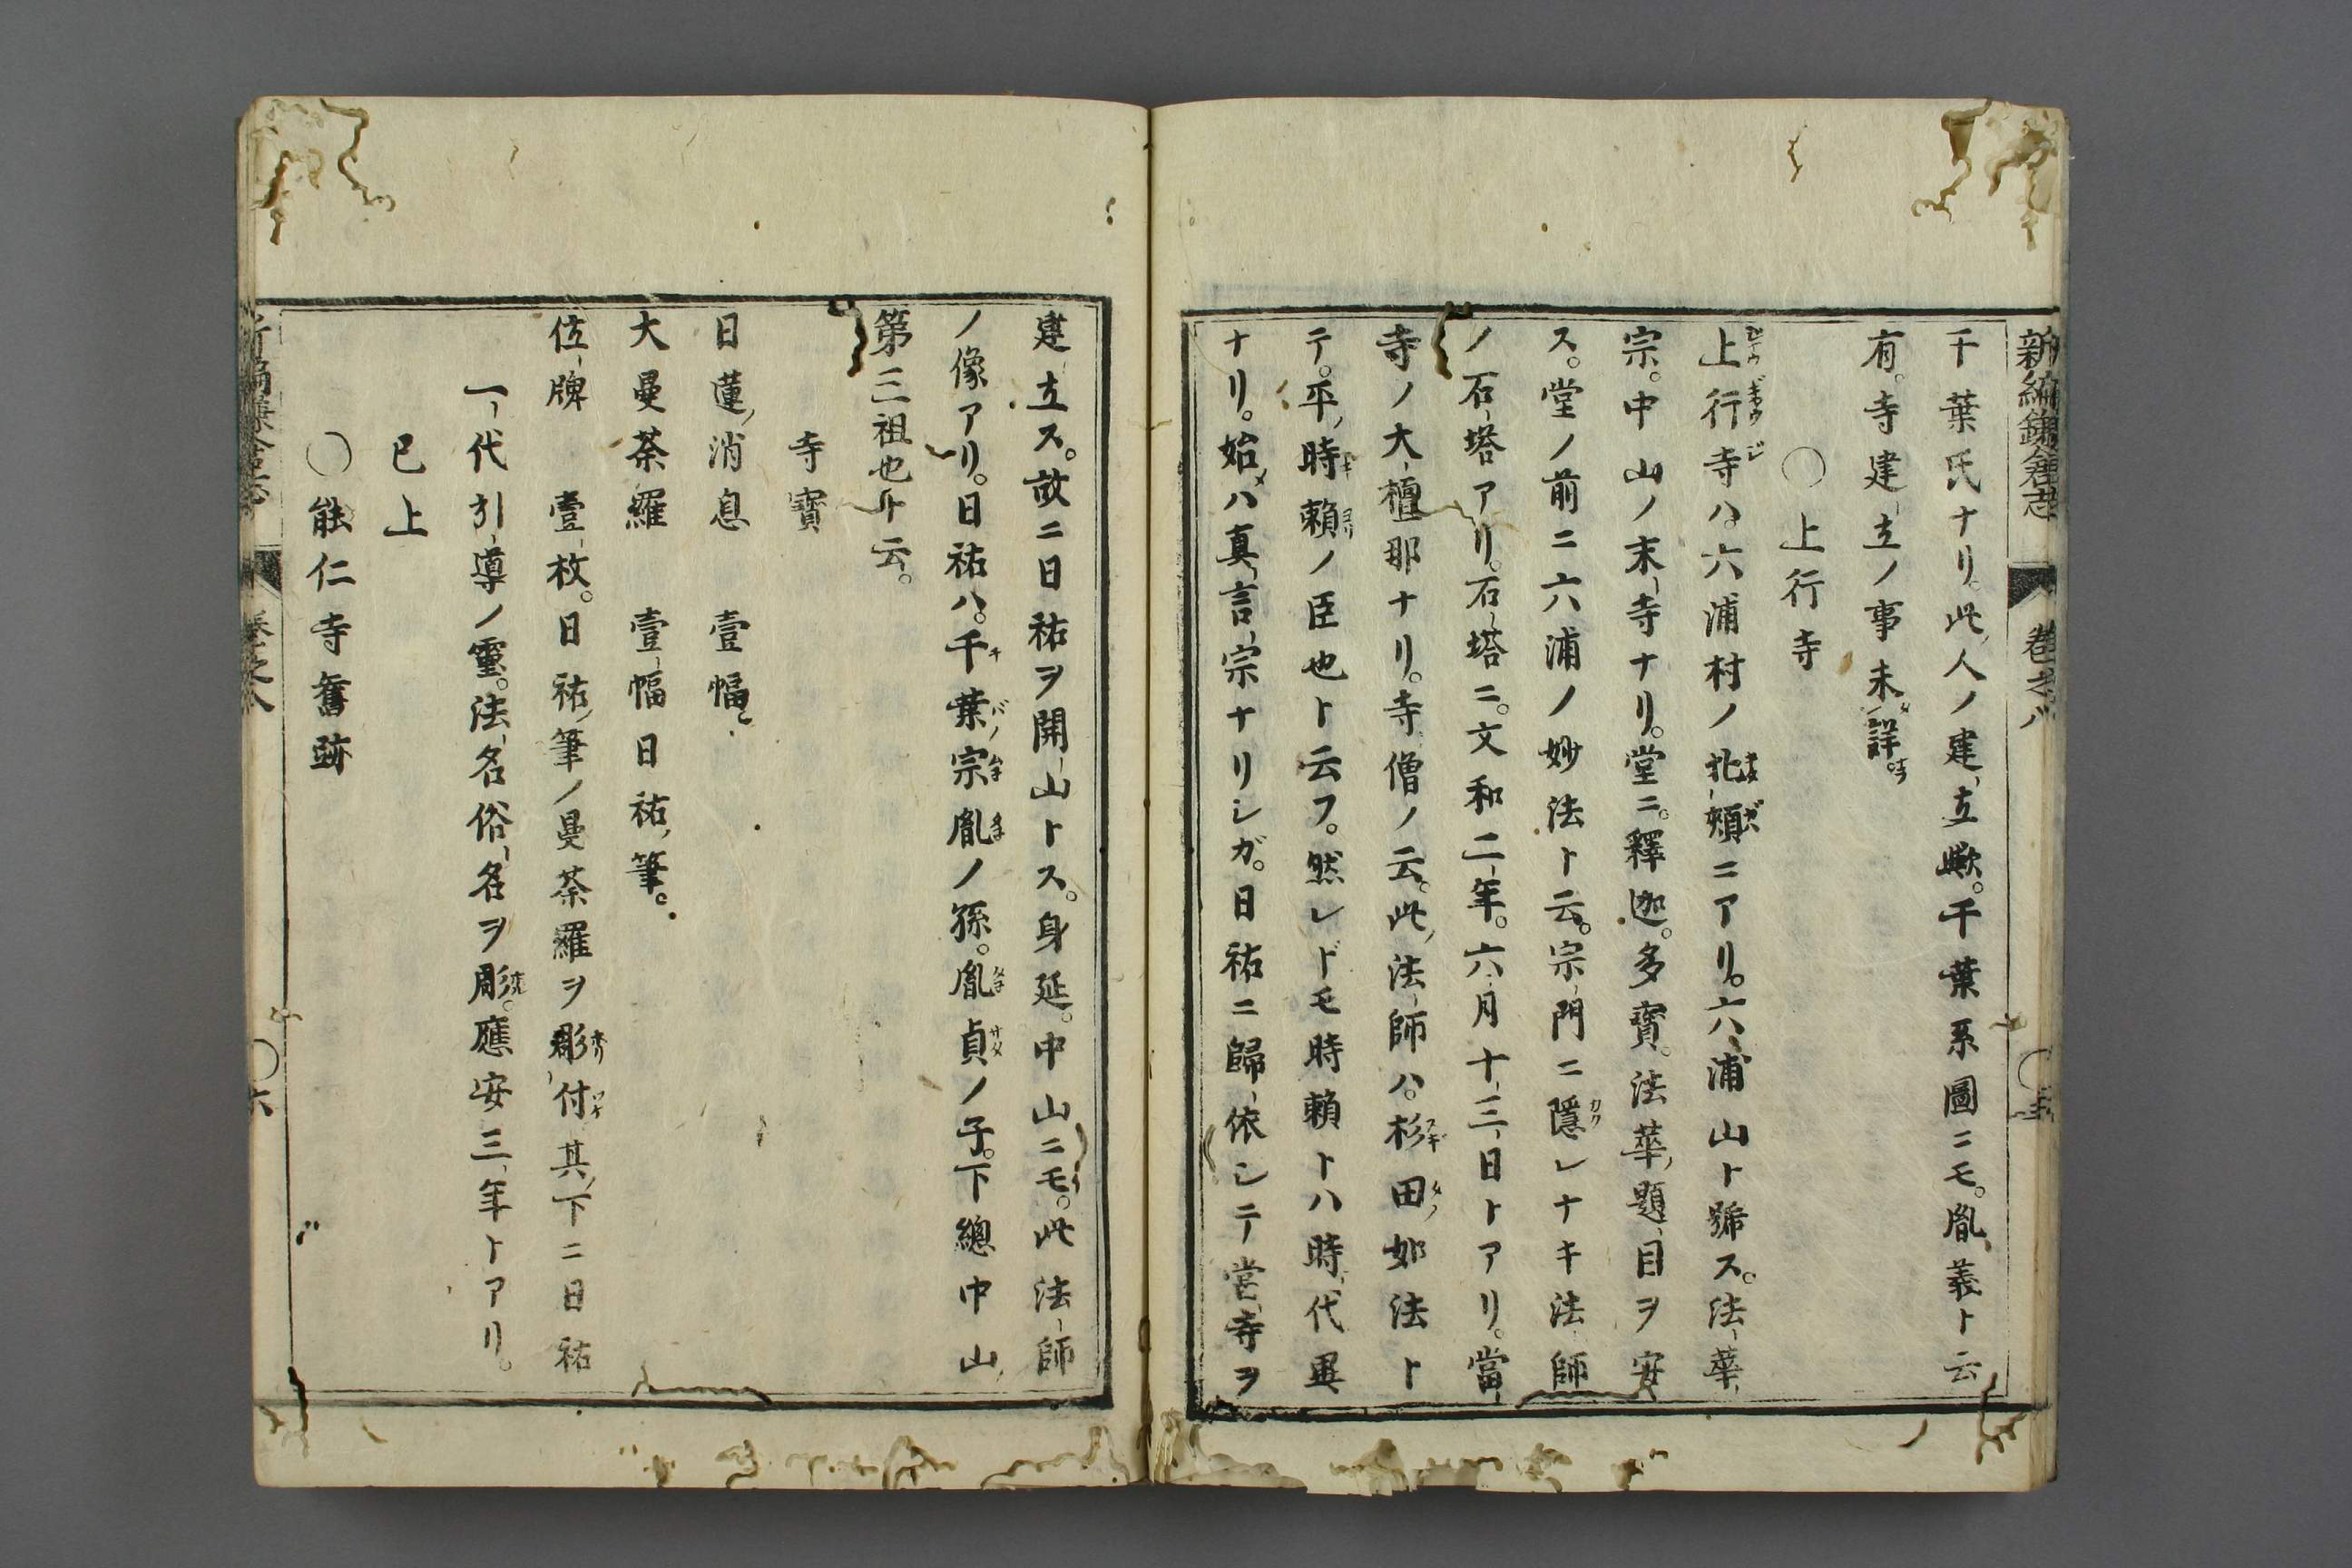 新編鎌倉志 巻之八 〇五
千葉氏ナリ。此人ノ建立歟。千葉系圖ニモ。胤義ト云
有。寺建立ノ事未詳。
〇上行寺
上行寺ハ。六浦村ノ北頰ニアリ。六浦山ト號ス。法華
宗。中山ノ末寺ナリ。堂ニ。釋迦。多寳。法華題目ヲ安
ス。堂ノ前ニ六浦ノ妙法ト云。宗門ニ隱レナキ法師
ノ石塔アリ。石塔ニ。文和二年。六月十三日トアリ。當
寺ノ大檀那ナリ。寺僧ノ云。此法師ハ。杉田妙法ト
テ。平時頼ノ臣也ト云フ。然レドモ時頼トハ時代異
ナリ。始メハ真言宗ナリシガ。日祐ニ歸依シテ當寺ヲ
建立ス。故ニ日祐ヲ開山トス。身延。中山ニモ。此法師
ノ像アリ。日祐ハ。千葉宗胤ノ孫。胤貞ノ子。下總中山
第三祖也ト云。
寺寳
日蓮消息 壹幅
大曼荼羅 壹幅 日祐筆。
位牌 壹枚。日祐筆ノ曼荼羅ヲ彫付其下ニ日祐
一代引導ノ靈。法名俗名ヲ彫。應安三年トアリ。
已上
〇能仁寺舊跡
巻之八 〇六